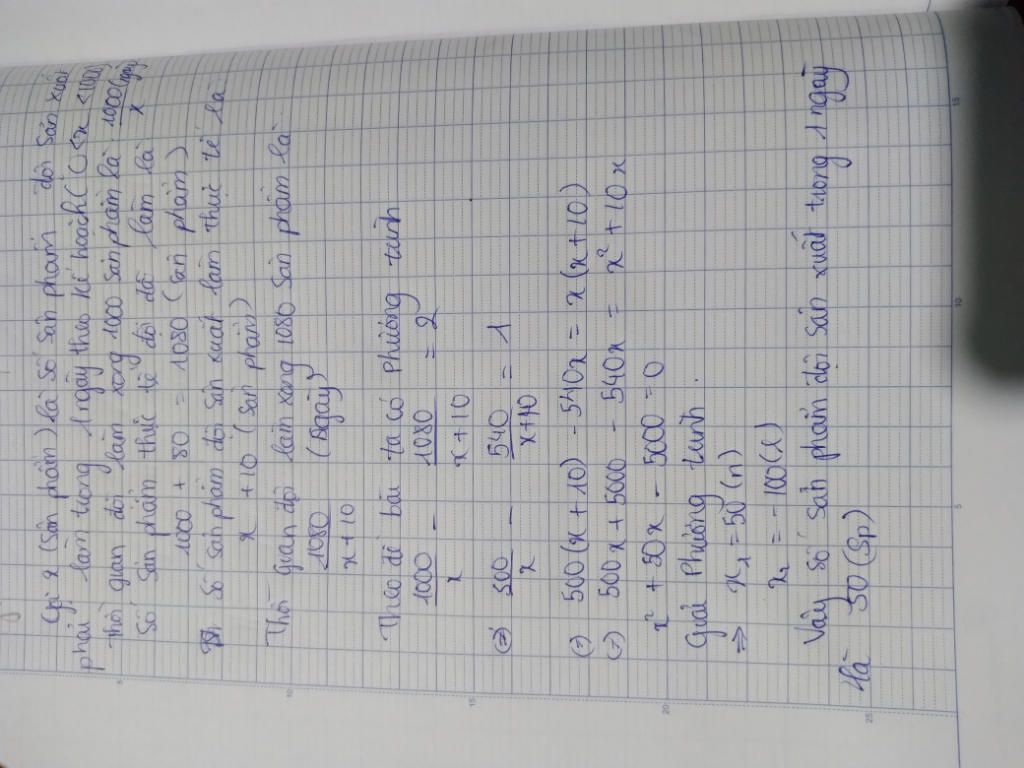 Gọi x (sản phẩm) là số sản phẩm đội sản xuất
phải làm trong 1 ngày theo kế hoạch (0 < x < 1000)
Thời gian đội làm xong 1000 sản phẩm là 1000/x (ngày)
Số sản phẩm thực tế đội đó làm là
1000 + 80 = 1080 (sản phẩm)
Số sản phẩm đội sản xuất làm thực tế là
x + 10 (sản phẩm)
Thời gian đội làm xong 1080 sản phẩm là
1080/(x+10) (ngày)
Theo đề bài ta có phương trình
1000/x - 1080/(x+10) = 2
(=) 500/x - 540/(x+10) = 1
(=) 500(x+10) - 540x = x(x+10)
(=) 500x + 5000 - 540x = x² + 10x
x² + 50x - 5000 = 0
Giải phương trình.
=> x₁ = 50 (n)
x₂ = -100 (l)
Vậy số sản phẩm đội sản xuất trong 1 ngày
là 50 (sp)